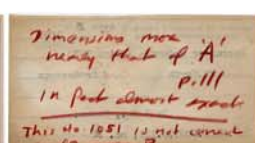 Dimensions more
nearly that of 'A'
p.111
in fact almost exact
This No. 1051 is not correct